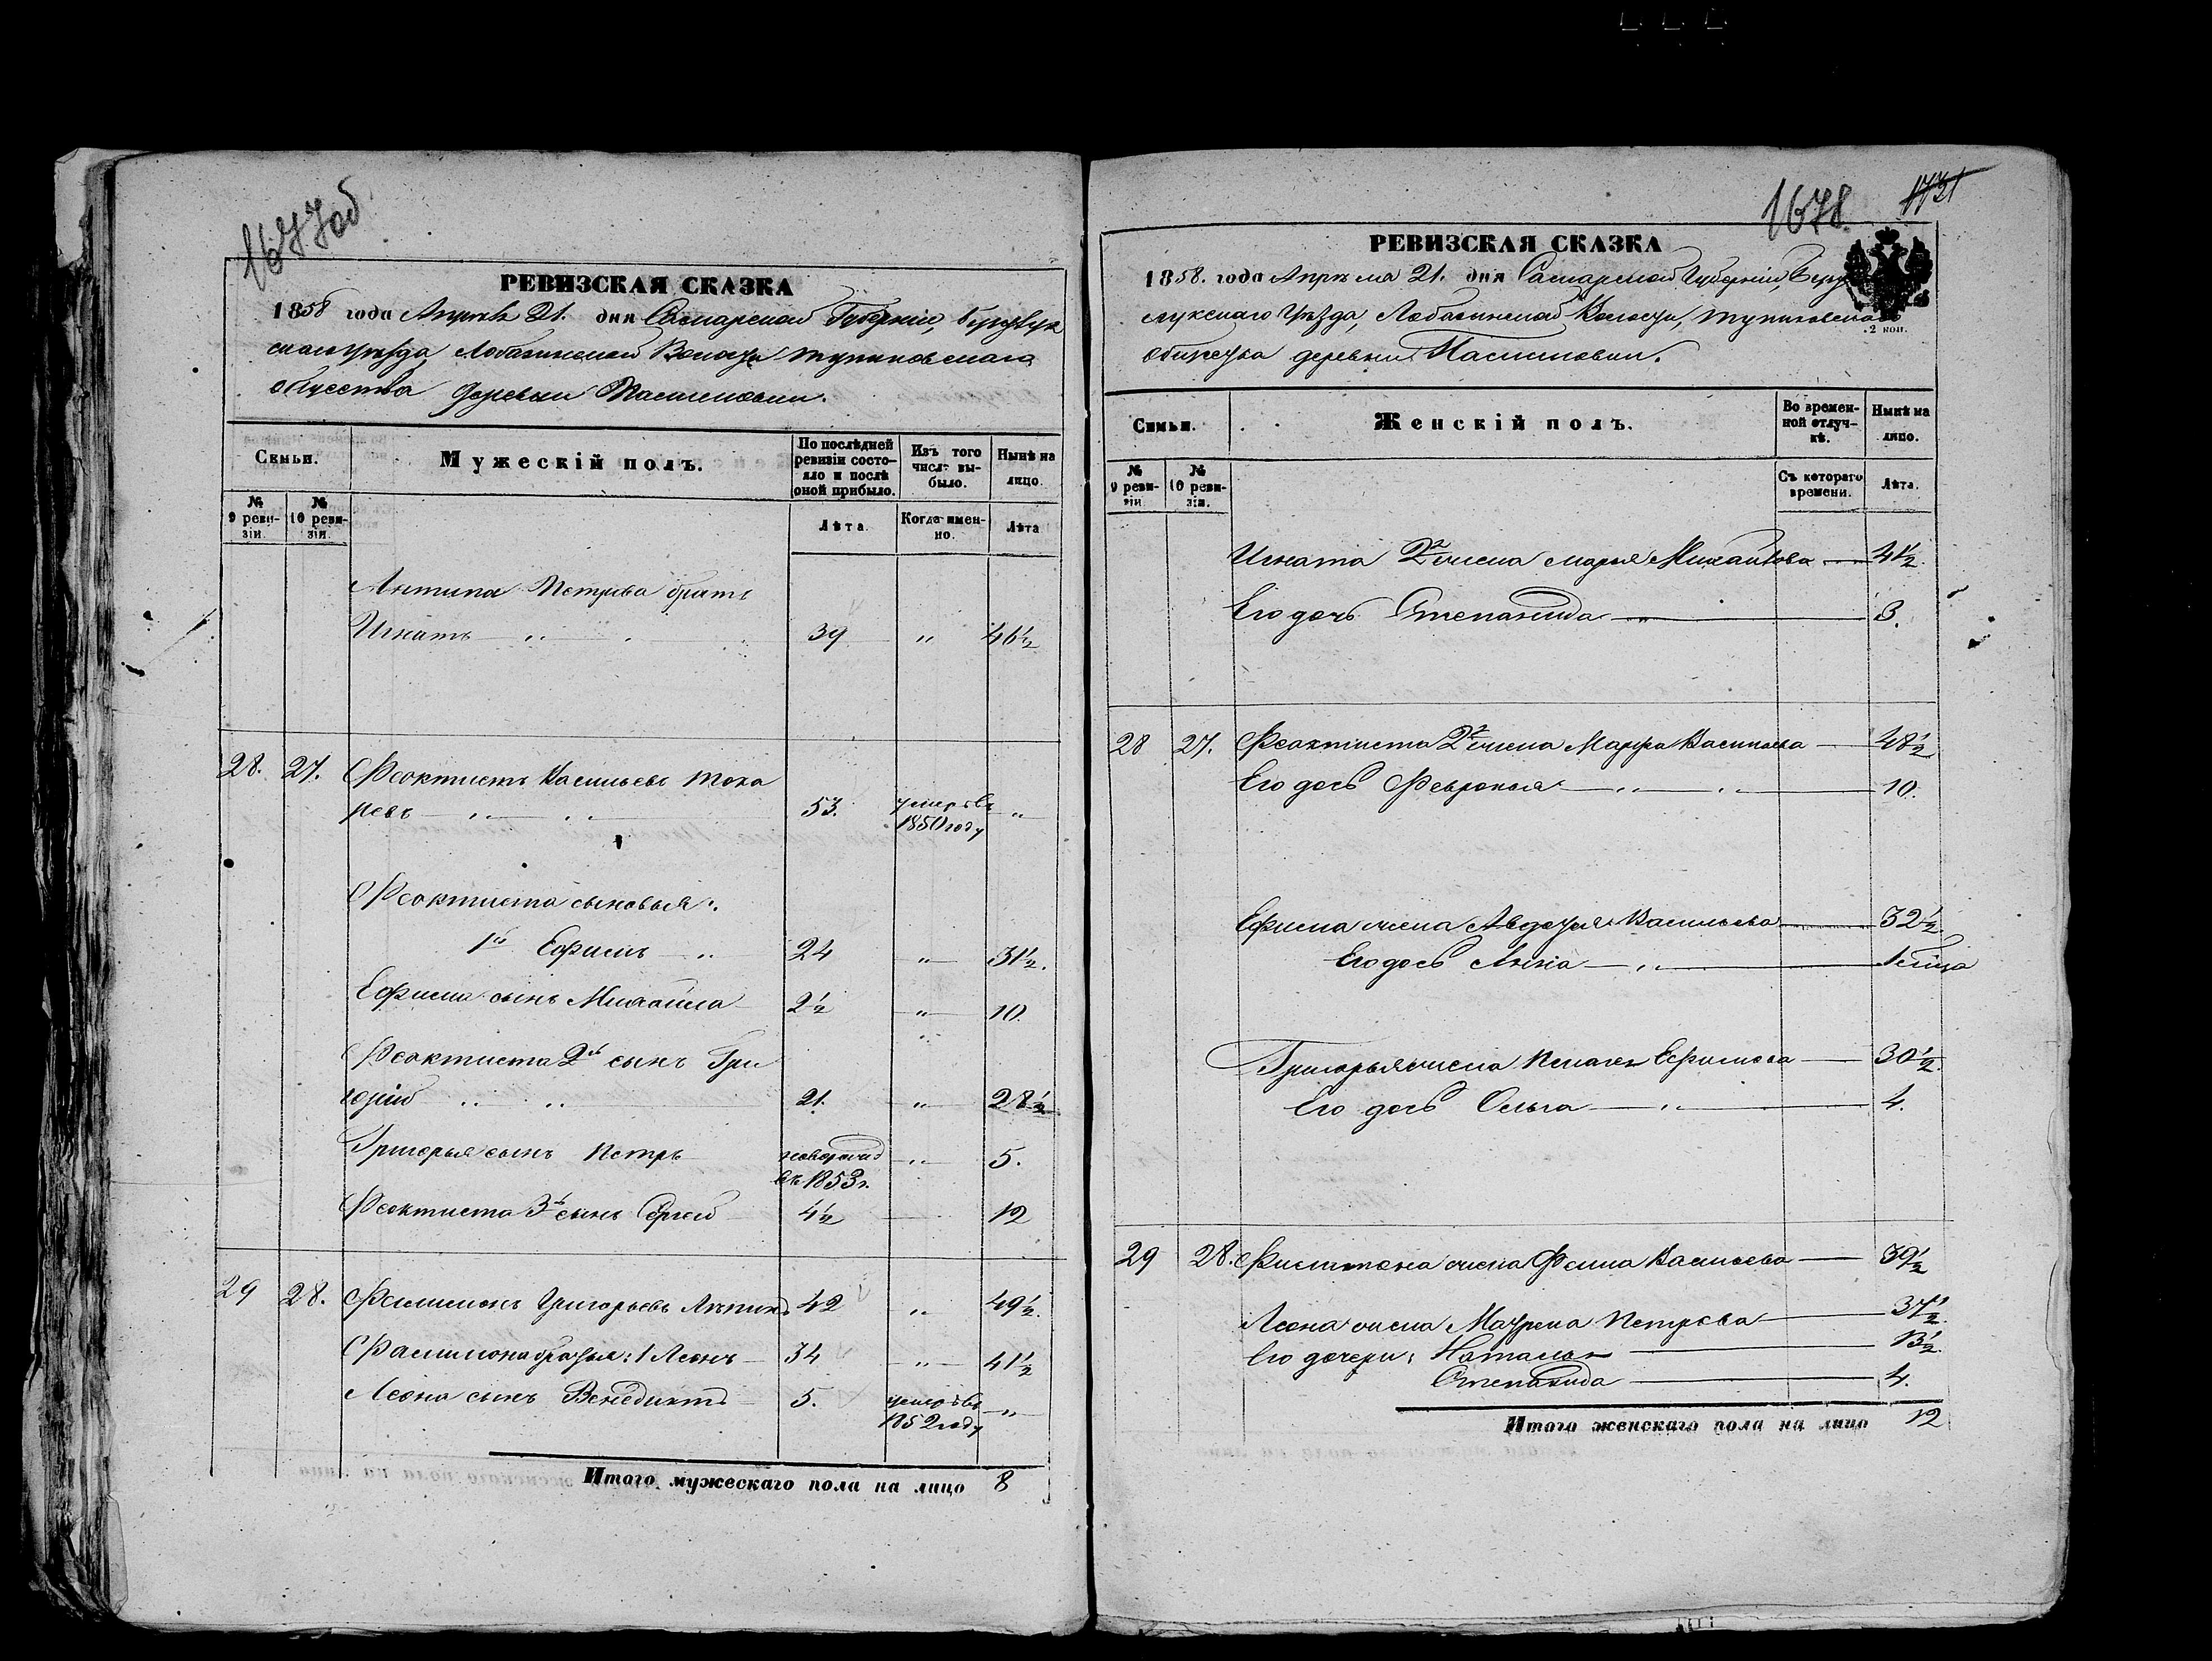 1677об
РЕВИЗСКАЯ СКАЗКА
1858 года Апреля 21. дня Самарской Губернiи, Бузулук
скаго Уѣзда Лобазинской Волости Тупиковскаго
общества деревни
Семьи.
Мужескiй полъ.
По послѣдней ревизiи состо-
яло и послѣ
оной прибыло.
Изъ того
числа вы-
было.
Нынѣ на
лицо.
№ 9 реви-
зiи.
№ 10 реви-
зiи.
Лѣта.
Когда имен-
но.
Лѣта
Антипа Петрова братъ
Игнатъ 39 " 46½
28. 27. Феоктистъ Васильевъ Тока
ревъ 53. умеръ въ 1850 году "
Феоктиста сыновья:
1й Ефимъ 24 " 31½.
Ефима сынъ Михайла 2½ " 10.
Феоктиста 2й сынъ Гри
горiй 21. " 28½
Григорья сынъ Петръ новорожд въ 1853 г. " 5.
Феоктиста 3й сынъ Сергей 4½ 12
29 28. Филимонъ Григорьевъ 42 " 49½.
Филимона братья: 1 Леонъ 34 " 41½
Леона сынъ Венедиктъ 5. умеръ въ 1852 году "
Итого мужескаго пола на лицо 8
1678. 1731
РЕВИЗСКАЯ СКАЗКА
1858. года Апреля 21. дня Самарской Губернiи, Бузу
лукскаго Уѣзда, Лобазинской Волости, Тупиковскаго
2 коп.
общества деревни
Семьи.
Женскiй полъ.
Во времен-
ной отлуч-
кѣ.
Нынѣ на
лицо.
№ 9 реви-
зiи
№ 10 реви-
зiи.
Съ котораго
времени.
Лѣта.
Игната 2я жена Марья Михайлова 41½.
Его дочь Степанида 3.
28 27. Феоктиста 2я жена Марфа Васильева 48½
Его дочь Февронья 10.
Ефима жена Авдотья Васильева 32½.
Его дочь Анна
Григорья жена Ефимова 30½.
Его дочь Ольга 4.
29 28. Филимона жена Фекла Васильева 39½
Леона жена Маурена Петрова 37½.
Его дочери: Наталья 13½.
Степанида 4.
Итого женскаго пола на лицо 12